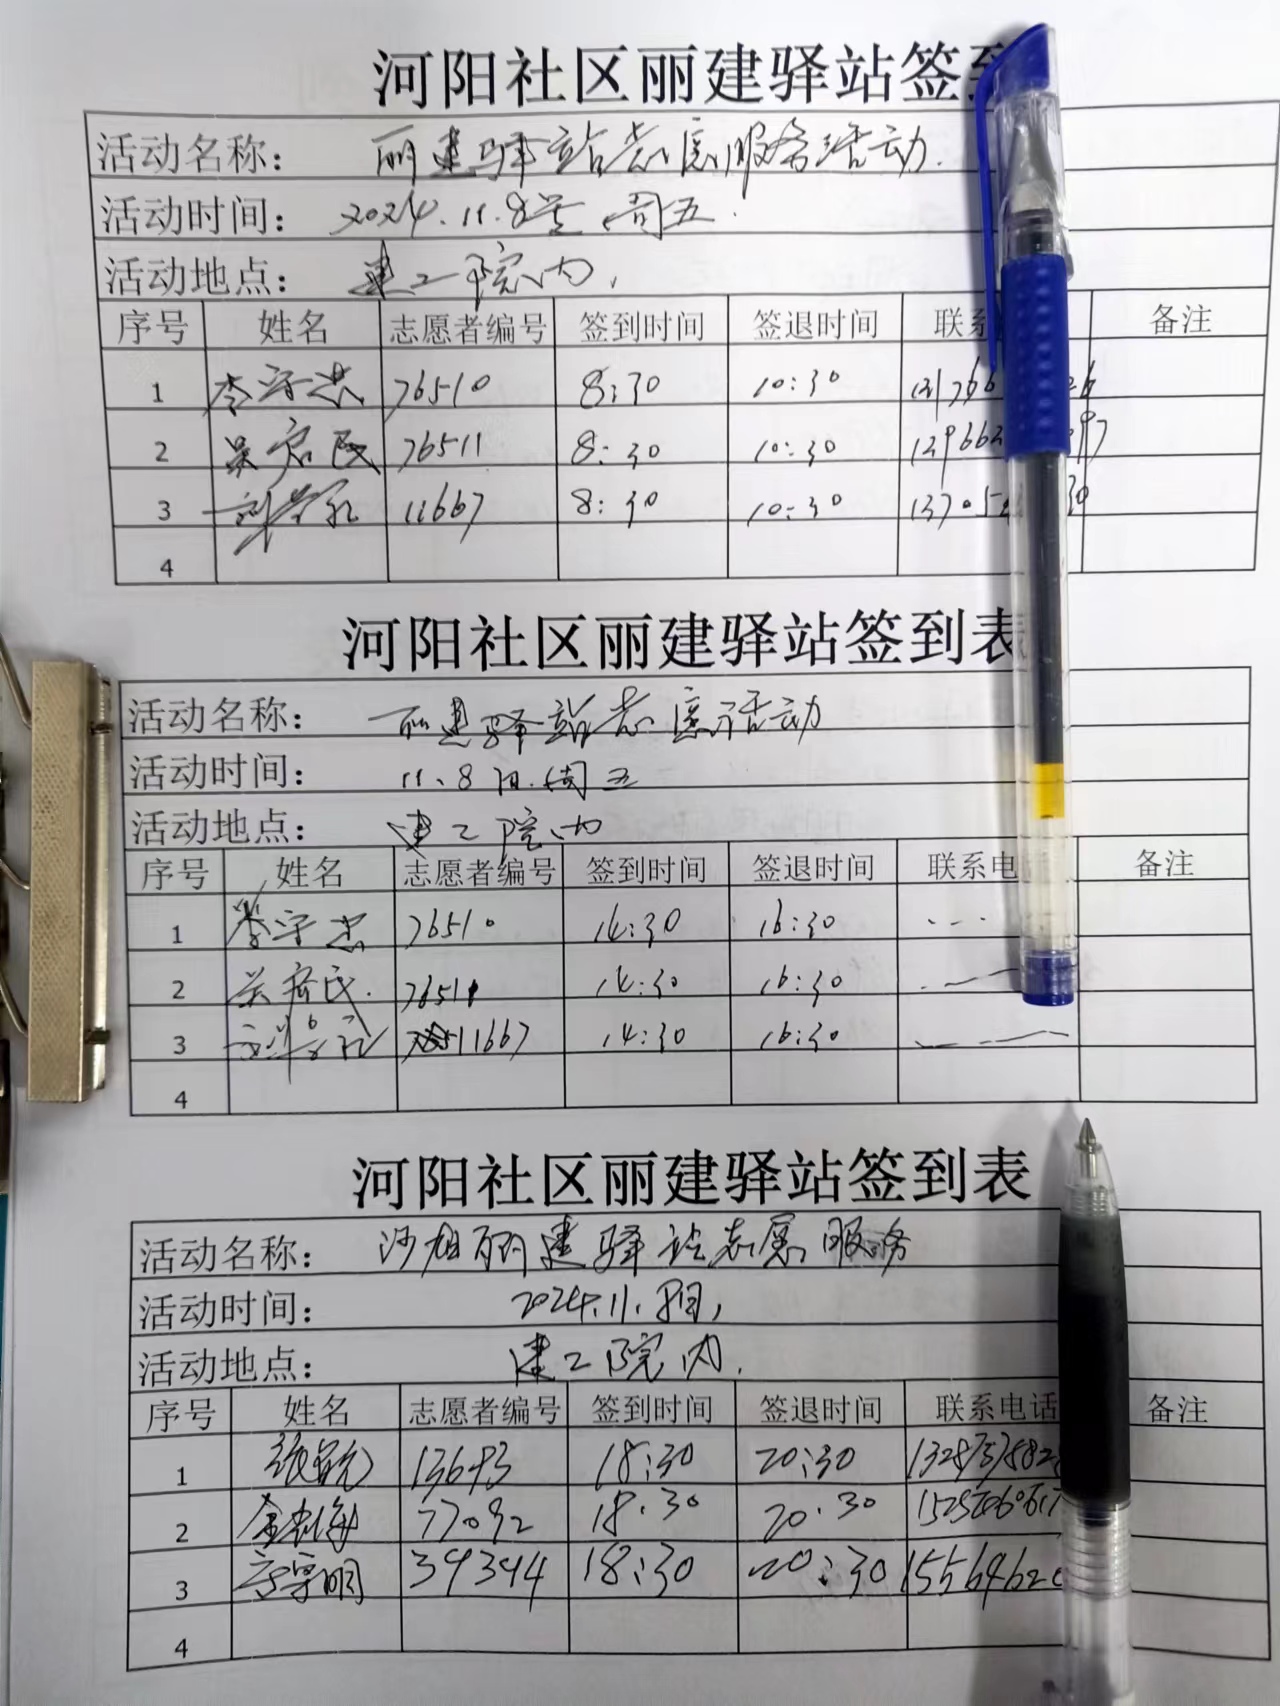 河阳社区丽建驿站签到
活动名称： 丽建驿站志愿服务活动.
活动时间： 2024.11.8号 周五.
活动地点： 建工院内,
序号 姓名 志愿者编号 签到时间 签退时间 联系 备注
1 李守忠 76510 8:30 10:30
2 吴启民 76511 8:30 10:30
3 11667 8:30 10:30
4
河阳社区丽建驿站签到表
活动名称： 丽建驿站志愿活动
活动时间： 11.8日.周五
活动地点： 建工院内
序号 姓名 志愿者编号 签到时间 签退时间 联系电 备注
1 李守忠 76510 14:30 16:30
2 吴启民. 76511 14:30 16:30
3 11667 14:30 16:30
4
河阳社区丽建驿站签到表
活动名称： 丽建驿站志愿服务
活动时间： 2024.11.8日,
活动地点： 建工院内.
序号 姓名 志愿者编号 签到时间 签退时间 联系电话 备注
1 13693 18:30 20:30
2 77092 18:30 20:30
3 39394 18:30 20:30 15564620
4